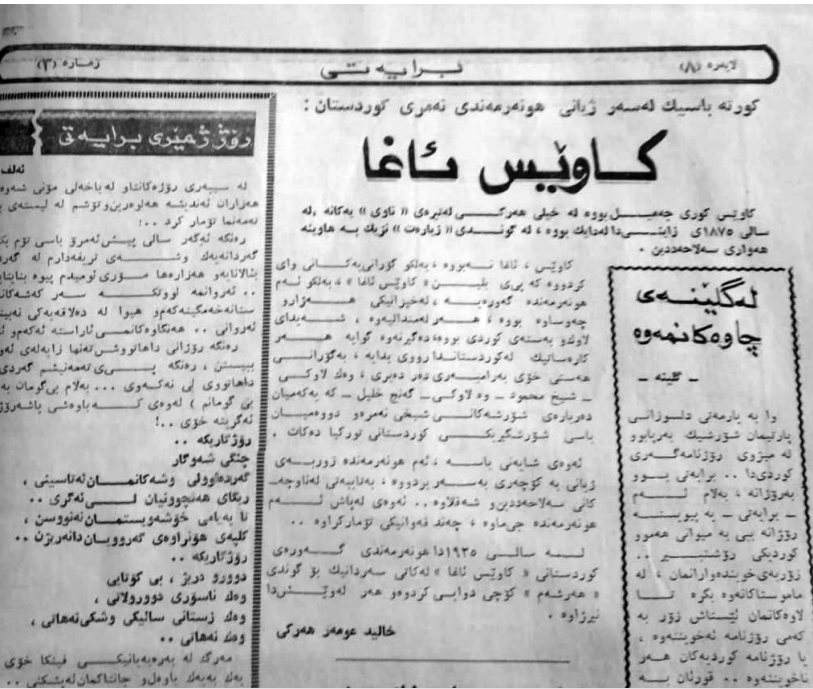 لاپەرە (٨)
برایەتی
ژمارە (٣)
کورتە باسیك لەسەر ژیانی هونەرمەندی نەمری کوردستان :
کاوێس ئاغا
کاوێس کوری جەمیل بووە لە خیلی هەرکی لەتیرەی « ناوی » یەکانە ، لە
سالی ١٨٧٥ی زاینیدا لەدایك بووە ، لە گوندی « زیارەت » نزیك بە هاوینە
هەواری سەلاحەددین .
کاوێس ، ئاغا نەبووە ، بەلکو گۆرانی‌یەکانی وای
کردووە کە پی‌ی بلین « کاوێس ئاغا » ، بەلکو ئەم
هونەرمەندە گەورەیە ، لەخیزانیکی هەژارو
چەوساوە بووە ، هەر لەمندالیەوە ، شەیدای
لاوك‌و بەستەی کوردی بووە ، دەگیرنەوە گوایە هەر
کارەساتیك لەکوردستاندا رووی بدایە ، بەگۆرانی
هەستی خۆی بەرامبەری دەر دەبری ، وەك لاوکی
ـ شیخ محمود ـ وە لاوکی ـ گەنج خلیل ـ کە یەکەمیان
دەربارەی شۆرشەکانی شیخی نەمرەو دووەمیان
باسی شۆرشگیریکی کوردستانی تورکیا دەکات .
ئەوەی شایەنی باسە ، ئەم هونەرمەندە زۆربەی
ژیانی بە کۆچەری بەسەر بردووە ، بەتایبەتی لەناوچە
کانی سەلاحەددین‌و شەقلاوە .. ئەوەی لەپاش ئەم
هونەرمەندە جی‌ماوە ، چەند قەوانیکی تۆمارکراوە ..
لە سالی ١٩٣٥دا هونەرمەندی گەورەی
کوردستانی « کاوێس ئاغا » لەکاتی سەردانیك بۆ گوندی
« هەرشەم » کۆچی دوایی کردووەو هەر لەوێشدا
نیژراوە .
خالید عومەر هەرکی
لەگلێنەی
چاوەکانمەوە
ـ گلینە ـ
وا بە یارمەتی دلسۆزانی
پارتیمان شۆرشیك بەرپابوو
لە میژوی رۆژنامەگەری
کوردی‌دا .. برایەتی بوو
بەرۆژانە ، بەلام ئەم
ـ برایەتی ـ یە پیویستە
رۆژانە ببی بە میوانی هەموو
کوردیکی رۆشنبیر ..
زۆربەی خویندەوارانمان ، لە
مامۆستاکانەوە بگرە تا
لاوەکانمان ئێستاش زۆر بە
کەمی رۆژنامە ئەخویننەوە ،
یا رۆژنامە کوردیەکان هەر
ناخویننەوە .. قورئان بە
رۆژژمێری برایەتی
ئەلف
لە سیبەری رۆژەکانتاو لەباخەلی مۆنی شەوە
هەزاران ئەندیشە هەلوەرین‌و تۆشم لە لیستەی
تەمەنما تۆمار کرد ..!
رەنگە ئەگەر سالی پیش ئەمرۆ باسی تۆم
گەردانەیەك وشەی تریفەدارم لە
ئالانایەو هەزارەها مۆری ئومیدم پیوە
.. ئەزوانمە لووتکە سەر کەشەکان
ستانە خەمگینەکەم‌و هیوا لە دەلاقەیەکی
ئەروانی .. هەنگاوەکانمی ئاراستە ئەکەم‌و
رەنگە رۆژانی داهاتووش تەنها زایەلەی
ببیستن ، رەنگە پیی تەمەنیشم گەردی
داهاتووی لی نەکەوی ... بەلام بی‌گومان
بی گومانم ) لەوەی کە باوەشی پاشەرۆژ
ئەگریتە خۆی ..!
رۆژ تاریکە ..
چنگی شەوگار
گەردەلوولی وشەکانمان لەتاسینی ،
ریگای هەنچوونیان لی ئەگری ..
تا پەیامی خۆشەویستمان نەنووسن ،
کلپەی هۆنراوەی گەروویان دانەریژن ..
رۆژ تاریکە ..
دوورو دریژ ، بی کۆتایی
وەك ناسۆری دوورولاتی ،
وەك زستانی سالیکی وشکی نەهاتی ،
وەك نەهاتی ..
مەرگ لە بەرەبەیانیکی فینکا خۆی